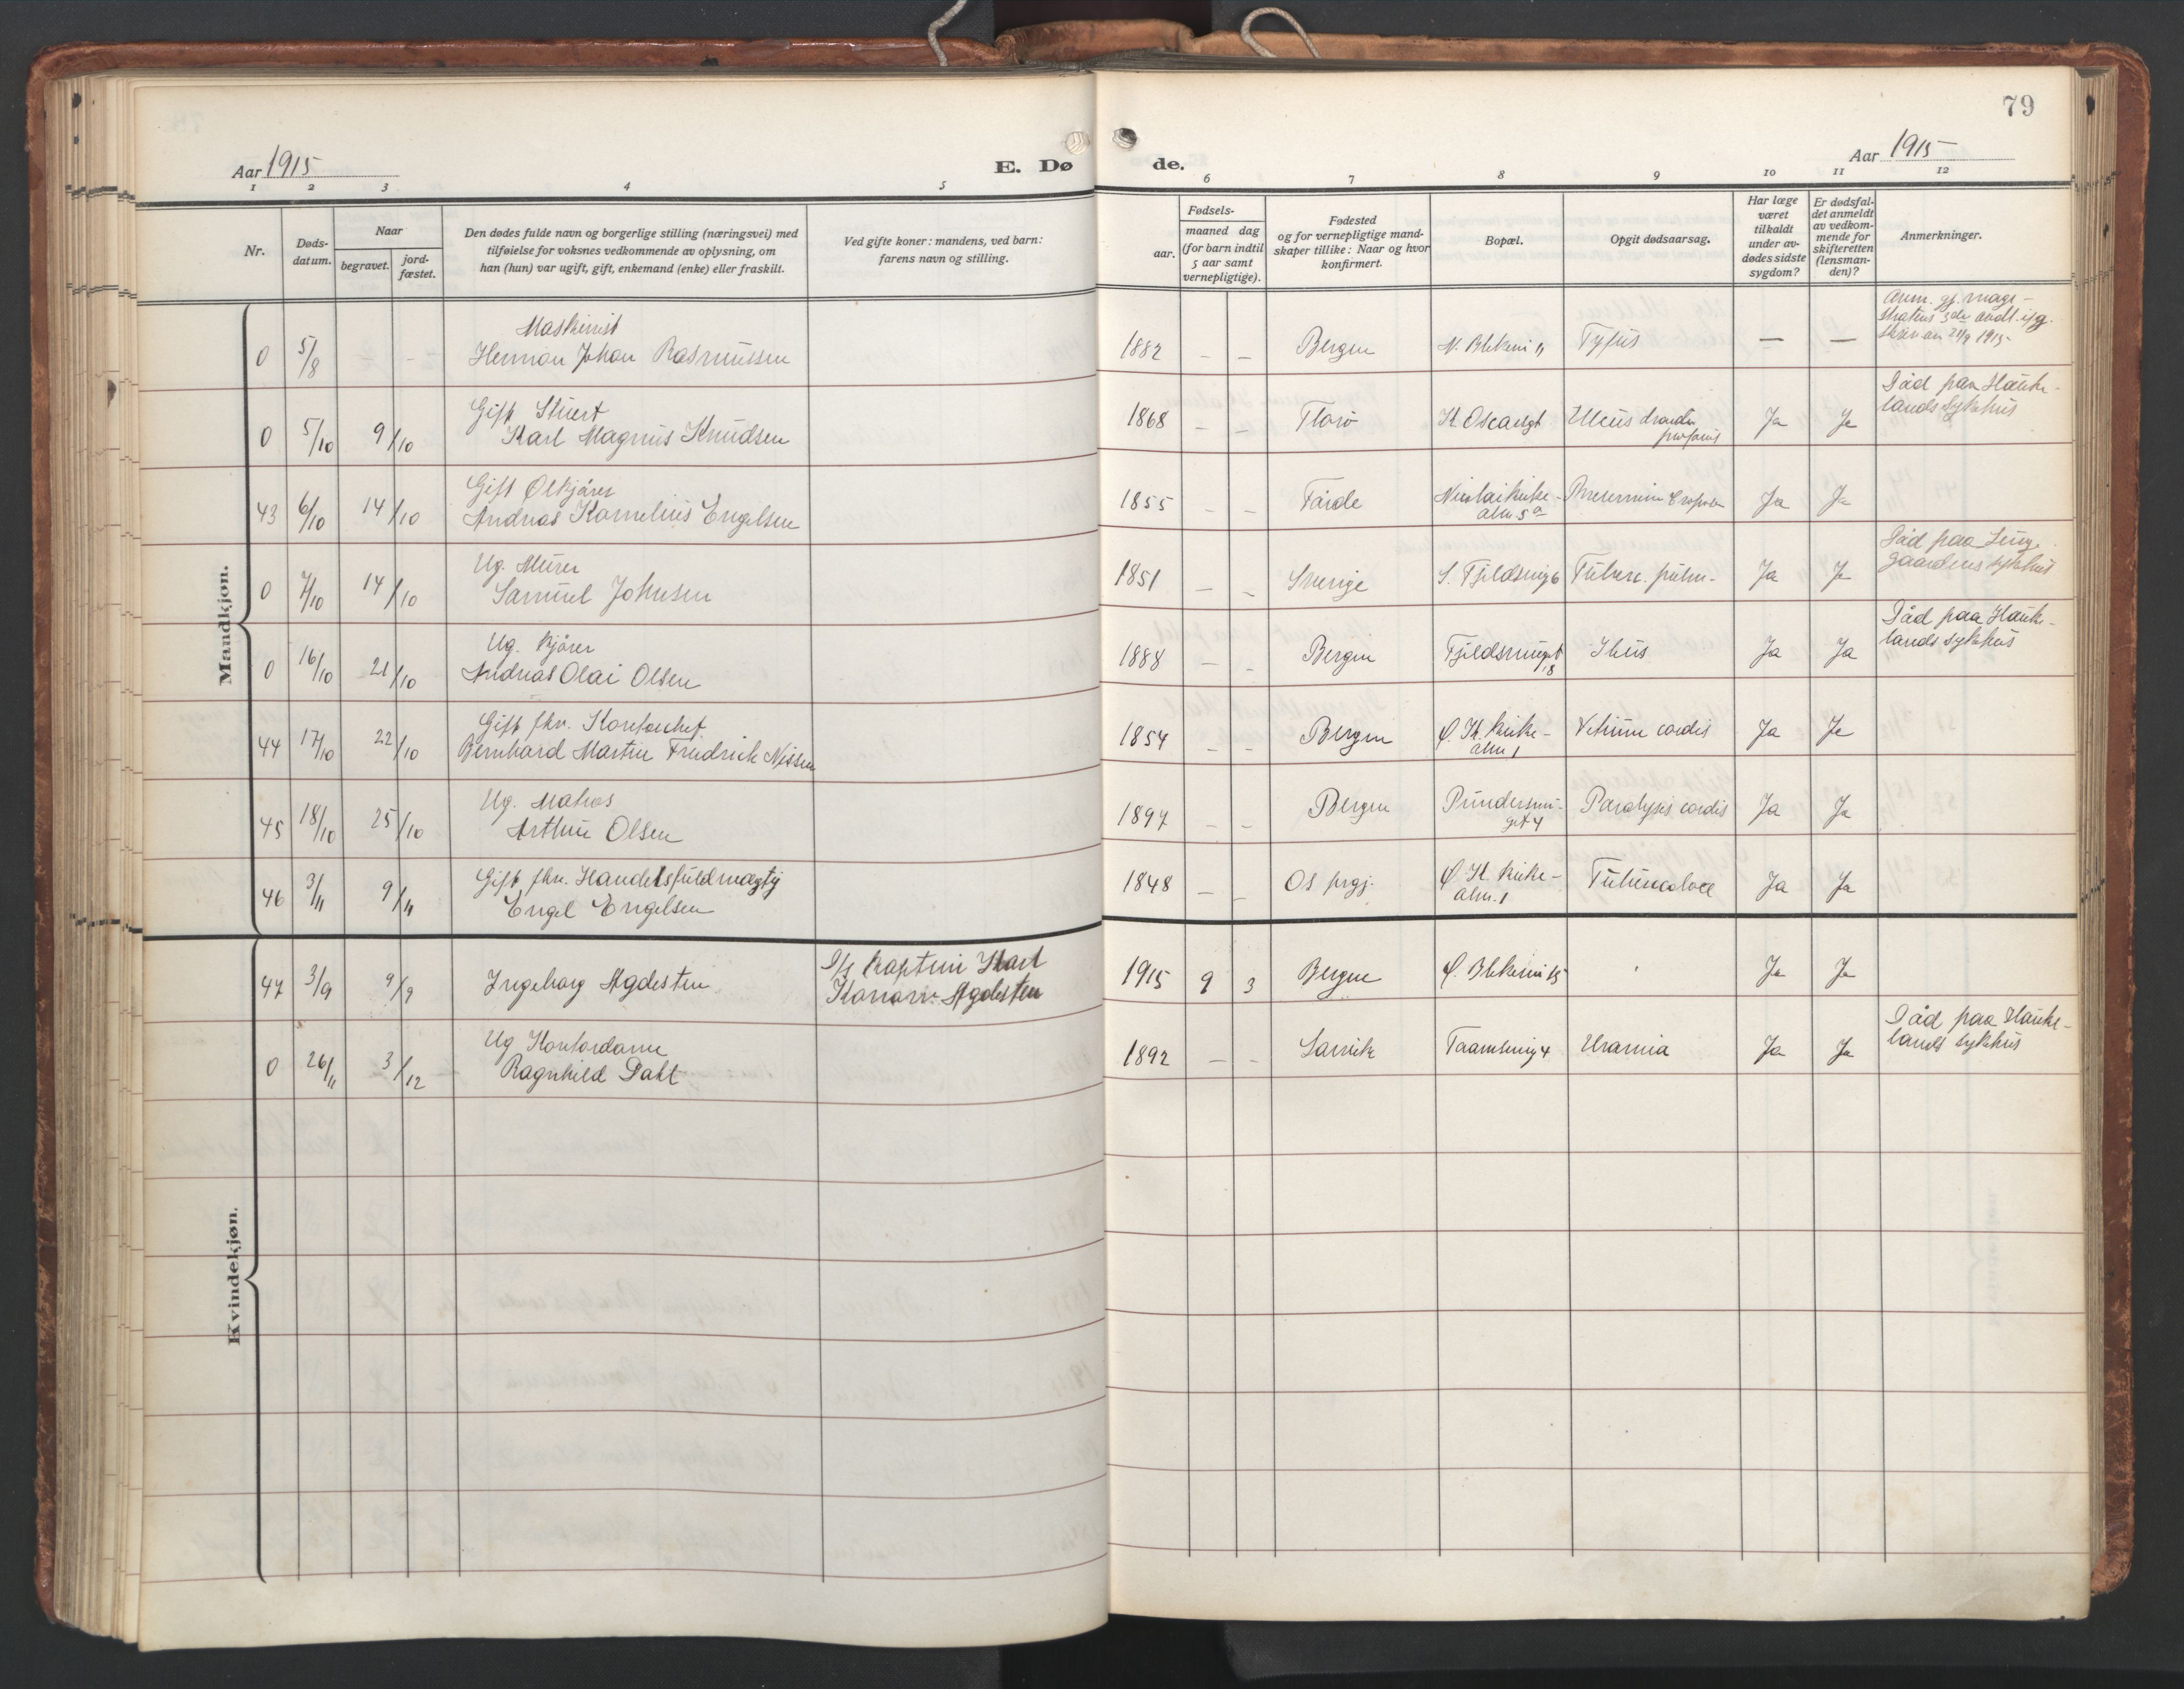 79
Aar 1915
E. Dø
de.
Aar 1915
1 2 3 4 5
6 7 8 9 10 11 12
Nr.
Døds-
datum.
Naar
begravet.
jord-
fæstet.
Den dødes fulde navn og borgerlige stilling (næringsvei) med
tilføielse for voksnes vedkommende av oplysning, om
han (hun) var ugift, gift, enkemand (enke) eller fraskilt.
Ved gifte koner: mandens, ved barn:
farens navn og stilling.
Fødsels-
aar.
maaned dag
(for barn indtil
5 aar samt
vernepligtige).
Fødested
og for vernepligtige mand-
skaper tillike: Naar og hvor
konfirmert.
Bopæl.
Opgit dødsaarsag.
Har læge
været
tilkaldt
under av-
dødes sidste
sygdom?
Er dødsfal-
det anmeldt
av vedkom-
mende for
skifteretten
(lensman-
den)?
Anmerkninger.
Mandkjøn.
Maskinist
0 5/8 Herman Johan Rasmussen
1882 – – Bergen N. Blekevei 11 Tyfus — —
Anm. gj. magi-
stratens 3die
1915
Gift Stuert
0 5/10 9/10 Karl Magnus Knudsen
1868 – – Florø K. Oscarsgt Ulcus Ja Ja
Død paa Hauke-
lands sykehus
Gift Ølkjører
43 6/10 14/10 Andreas Kornelius Engelsen
1855 – – Førde Nicolaikirke-
alm. 5a Ja Ja
Ug. Murer
0 7/10 14/10 Samuel Johnsen
1851 – – Sverige S. Fjeldsmug 6 Tuberc. pulm. Ja Ja
Død paa Lung-
gaardens sykehus
Ug. Kjører
0 16/10 21/10 Andreas Olai Olsen
1888 – – Bergen Fjeldsmuget
18 Ileus Ja Ja
Død paa Hauke-
lands sykehus
Gift fhv. Kontorchef
44 17/10 22/10 Bernhard Martin Fredrick Nissen
1854 – – Bergen Ø. K. Kirke-
alm. 1 Vitium cordis Ja Ja
Ug. Matros
45 18/10 25/10 Arthur Olsen
1897 – – Bergen Pundersmu-
get 4 Paralysis cordis Ja Ja
Gift, fhv. Handelsfuldmægtig
46 3/11 9/11 Engel Engelsen
1848 – – Os prgj. Ø. K. Kirke-
alm. 1 Tuberculose Ja Ja
Kvindekjøn.
47 3/9 9/9 Ingeborg Agdesten
Kaptein Karl
Agdesten
1915 9 3 Bergen Ø. Blekevei 15 Ja Ja
Ug Kontordame
0 26/11 3/12 Ragnhild Dahl
1892 – – Larvik 4 Uræmia Ja Ja
Død paa Hauke-
lands sykehus